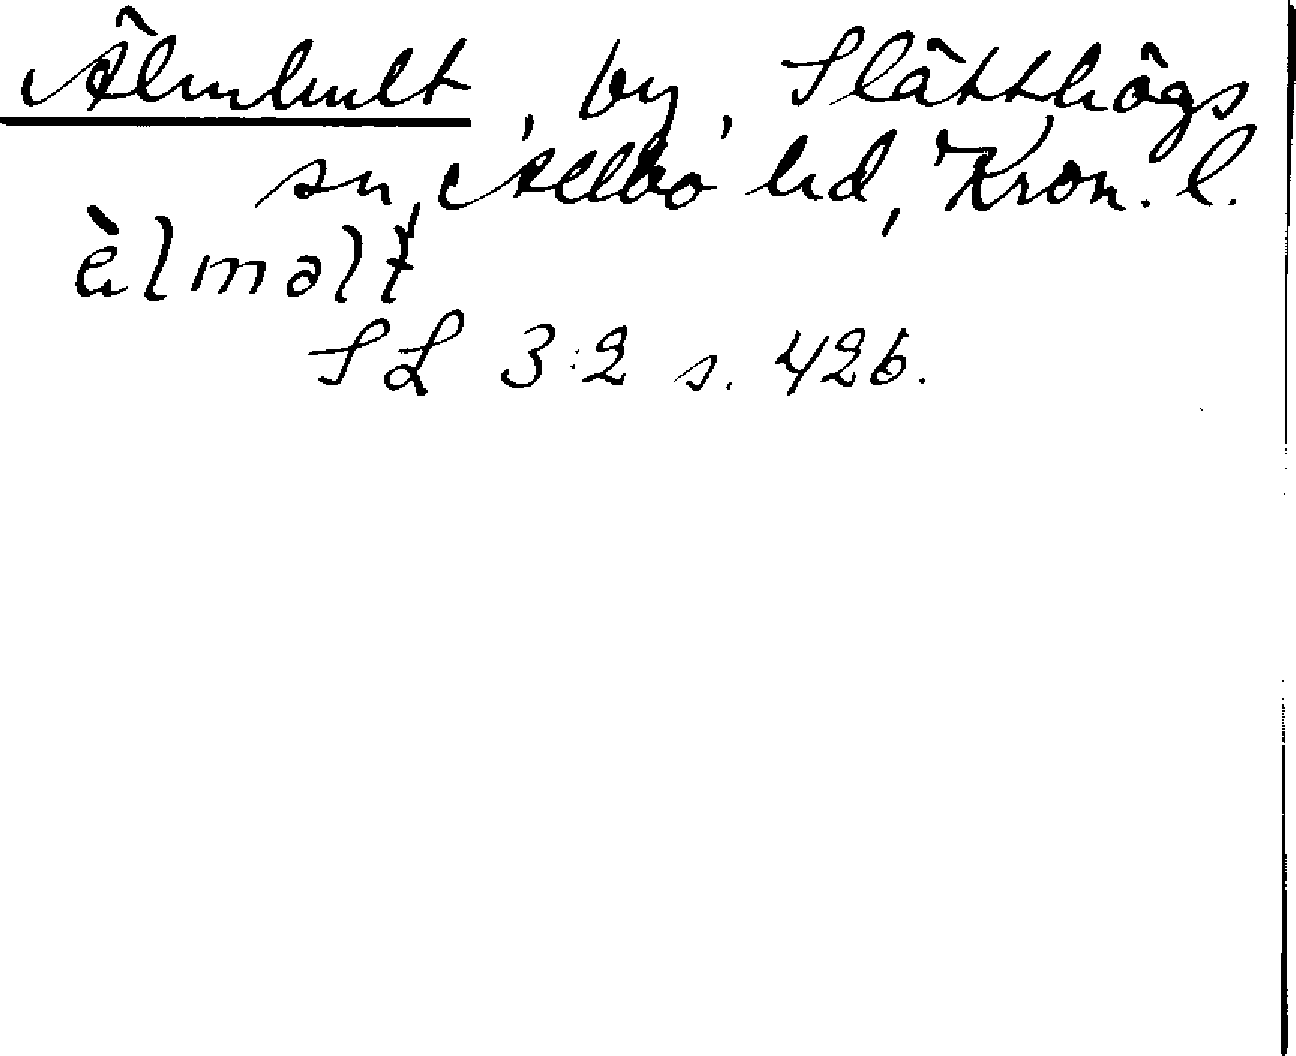 Älmhult, by, Slätthögs
sn, Allbo hd, Kron. l.
èlməlt
SL 3:2 s. 426.